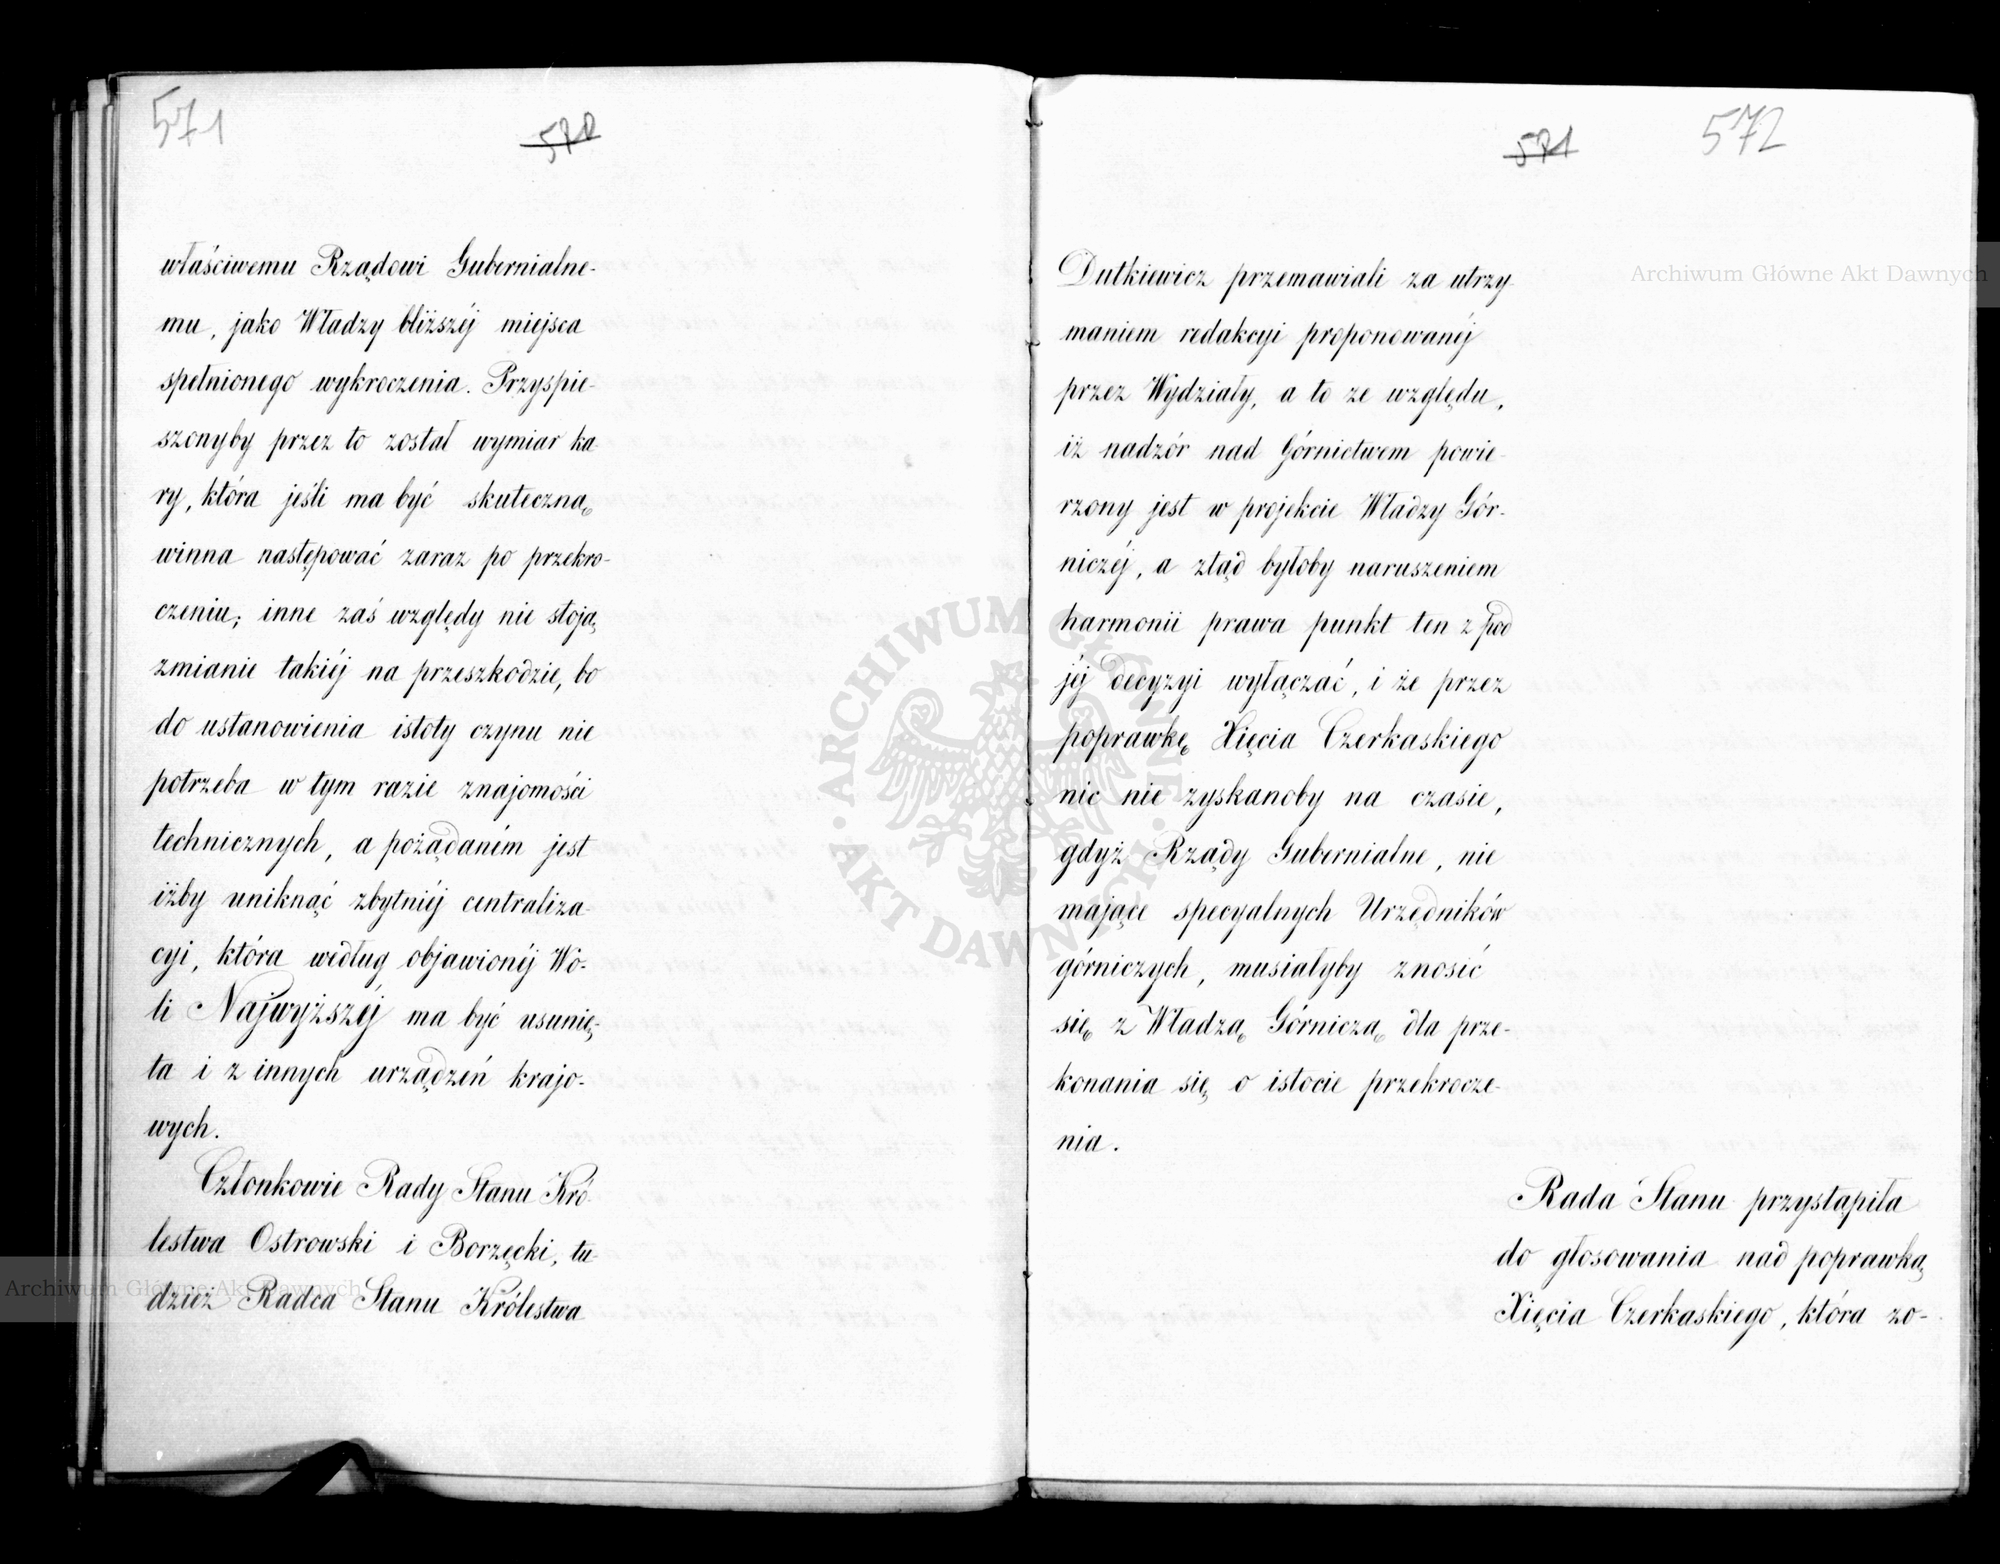 571
570
właściwemu Rządowi Gubernialne-
mu, jako Władzy bliższéj miejsca
spełnionego wykroczenia. Przyspie-
szonyby przez to został wymiar ka-
ry, która jeśli ma być skuteczną
winna następować zaraz po przekro-
czeniu; inne zaś względy nie stoją
zmianie takiéj na przeszkodzie, bo
do ustanowienia istoty czynu nie
potrzeba w tym razie znajomości
technicznych, a pożądaném jest
iżby uniknąć zbytniéj centraliza-
cyi, która według objawionéj Wo-
li Najwyższéj ma być usunię-
ta i z innych urządzeń krajo-
wych.
Członkowie Rady Stanu Kró-
lestwa Ostrowski i Borzęcki, tu-
dzież Radca Stanu Królestwa
571
572
Dutkiewicz przemawiali za utrzy-
maniem redakcyi proponowanéj
przez Wydziały, a to ze względu,
iż nadzór nad Górnictwem powie-
rzony jest w projekcie Władzy Gór-
niczéj, a ztąd byłoby naruszeniem
harmonii prawa punkt ten z pod
jéj decyzyi wyłączać, i że przez
poprawkę Xięcia Czerkaskiego
nic nie zyskanoby na czasie,
gdyż Rządy Gubernialne, nie
mające specyalnych Urzędników
górniczych, musiałyby znosić
się z Władzą Górniczą dla prze-
konania się o istocie przekrocze-
nia.
Rada Stanu przystąpiła
do głosowania nad poprawką
Xięcia Czerkaskiego, która zo-
Archiwum Główne Akt Dawnych
Archiwum Główne Akt Dawnych
ARCHIWUM GŁÓWNE AKT DAWNYCH